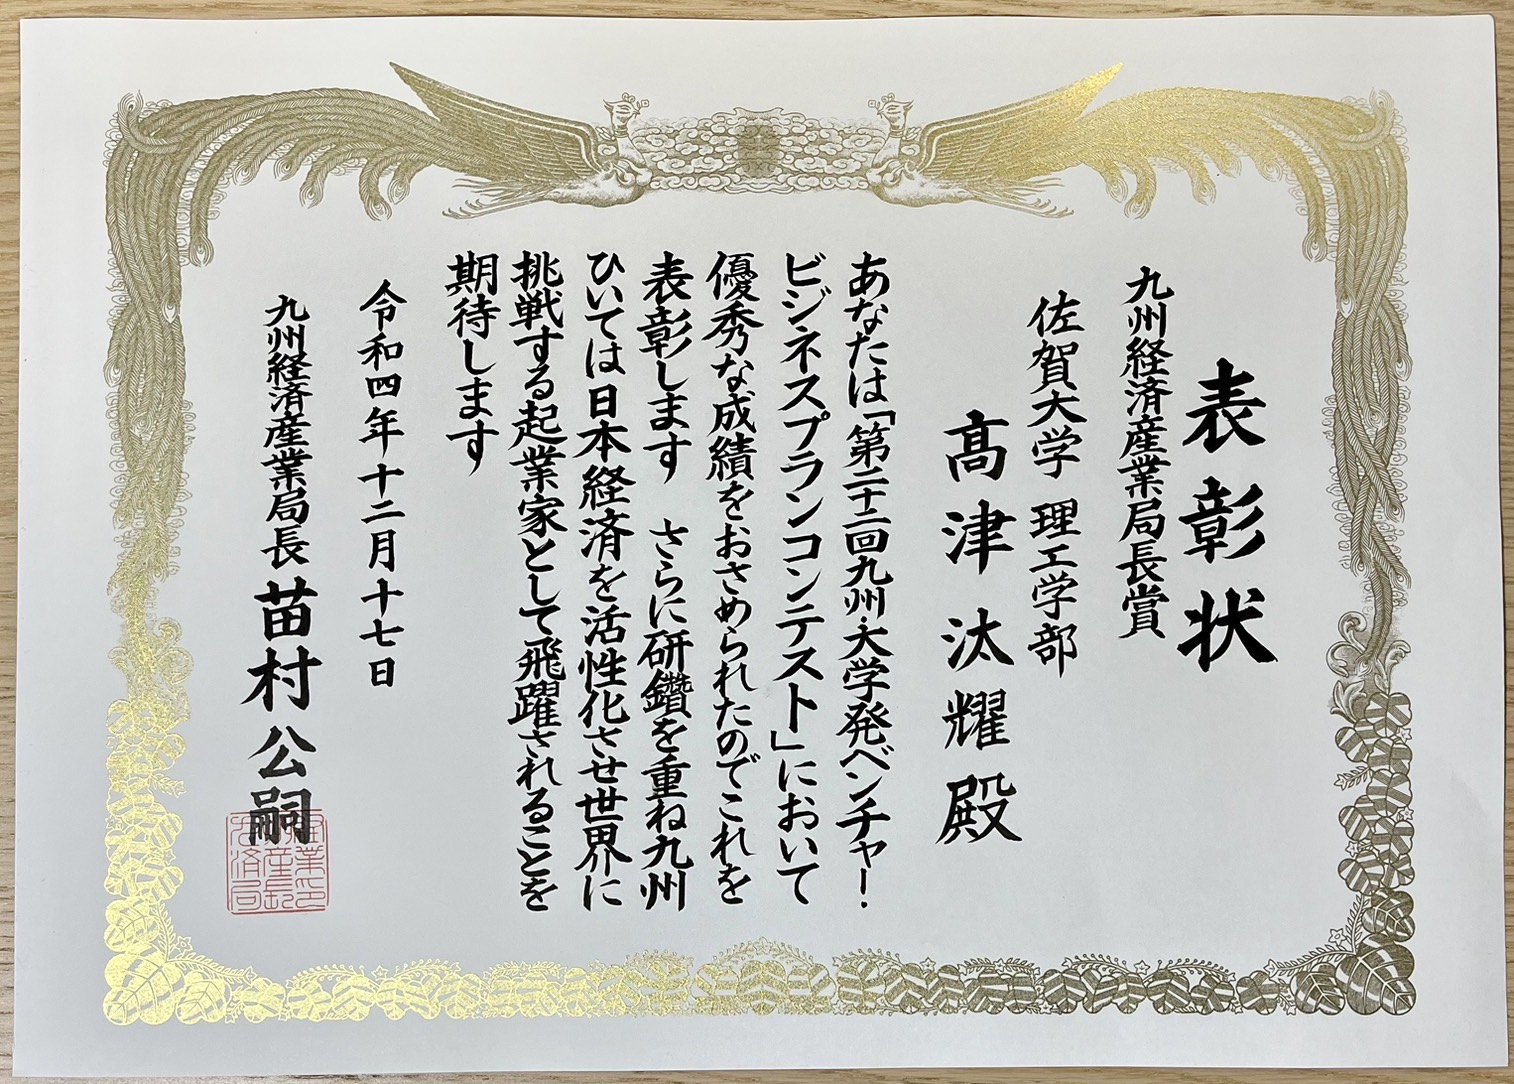 表彰状
九州経済産業局長賞
佐賀大学 理工学部
髙津汰耀殿
あなたは「第二十二回九州・大学発ベンチャー!
ビジネスプランコンテスト」において
優秀な成績をおさめられたのでこれを
表彰します さらに研鑽を重ね九州
ひいては日本経済を活性化させ世界に
挑戦する起業家として飛躍されることを
期待します
令和四年十二月十七日
九州経済産業局長 苗村公嗣